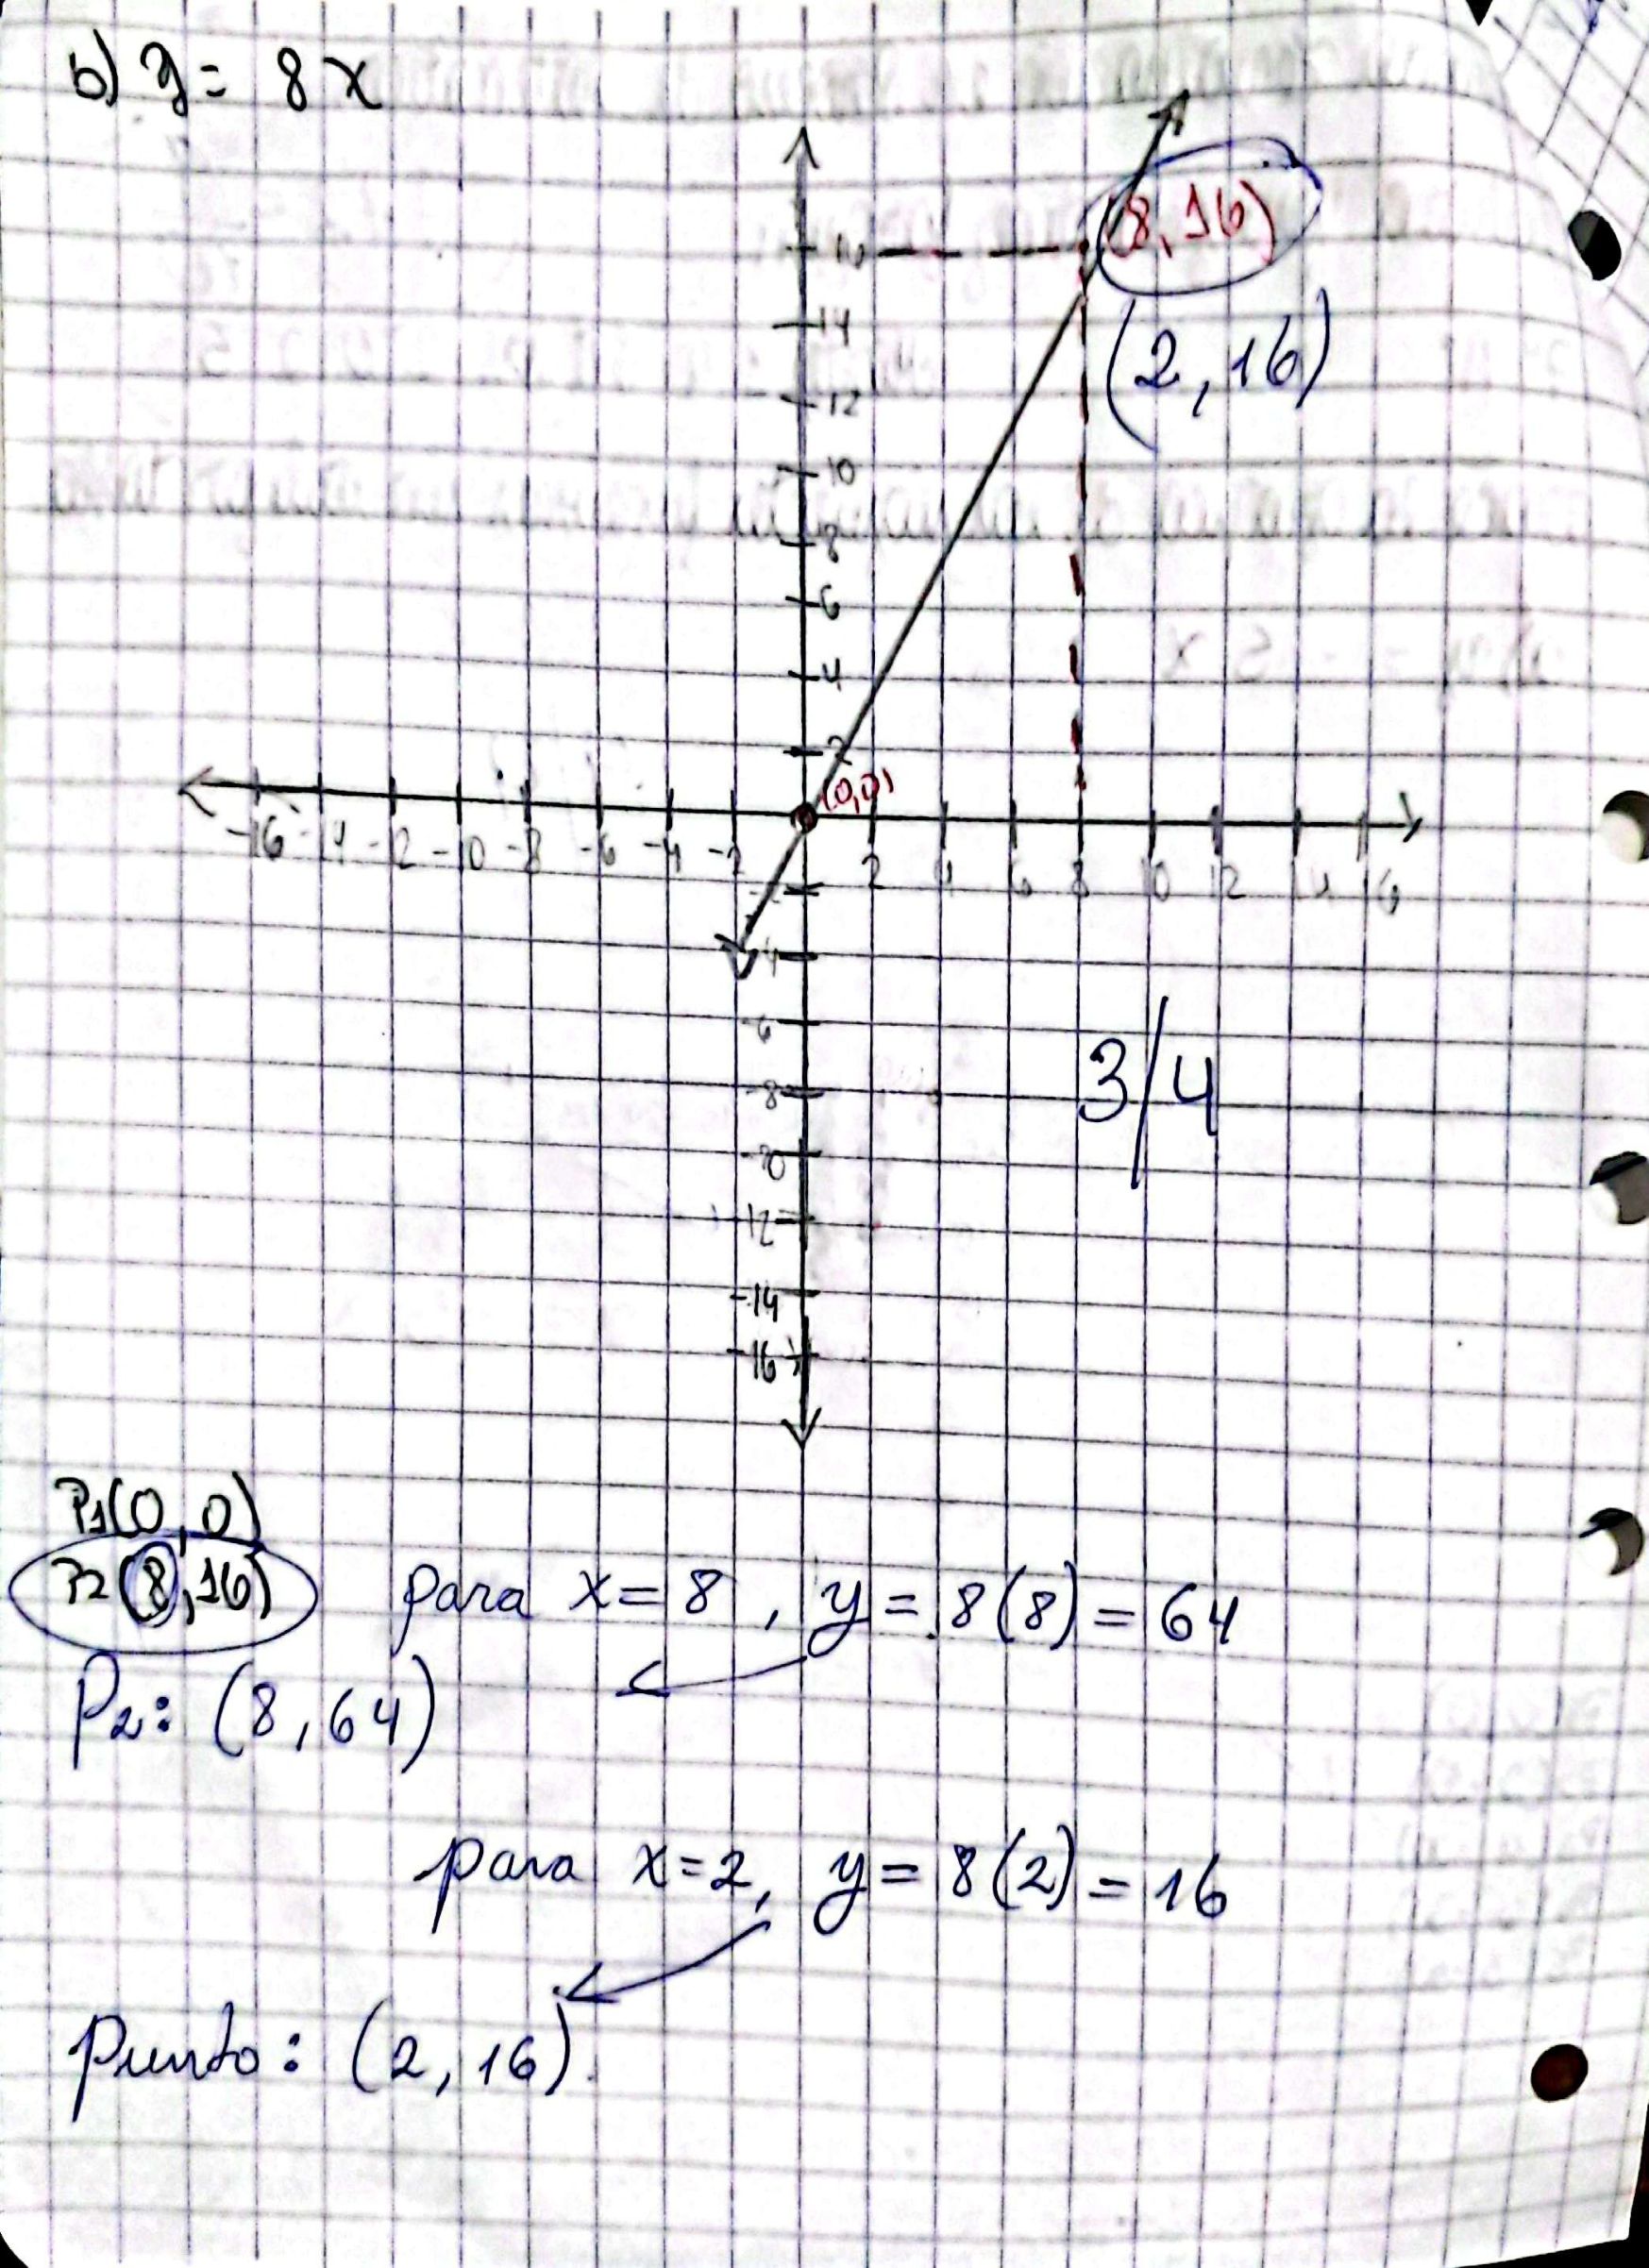 b) y = 8x
(8,16)
16
(2,16)
14
12
10
8
6
4
2
(0,0)
-16 -14 -12 -10 -8 -6 -4 -2 2 4 6 8 10 12 14 16
-2
-4
-6
-8
-10
-12
-14
-16
3/4
P1(0,0)
P2(8,16) para x=8, y=8(8)=64
P2: (8,64)
para x=2, y=8(2)=16
Punto: (2,16).